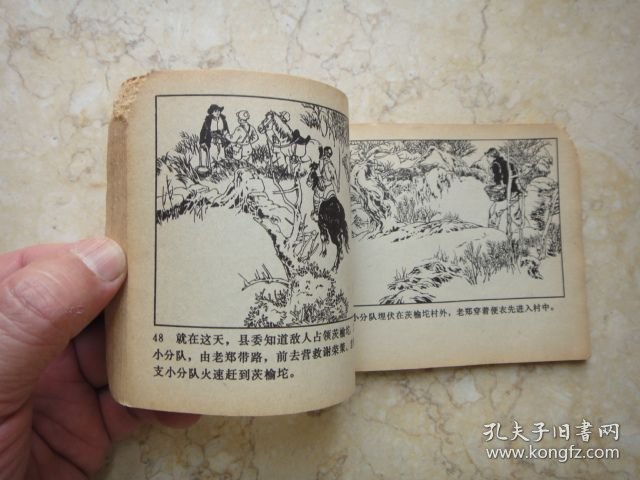 48 就在这天，县委知道敌人占领茨榆坨，
小分队，由老郑带路，前去营救谢荣策。
支小分队火速赶到茨榆坨。
小分队埋伏在茨榆坨村外，老郑穿着便衣先进入村中。
孔夫子旧书网
www.kongfz.com